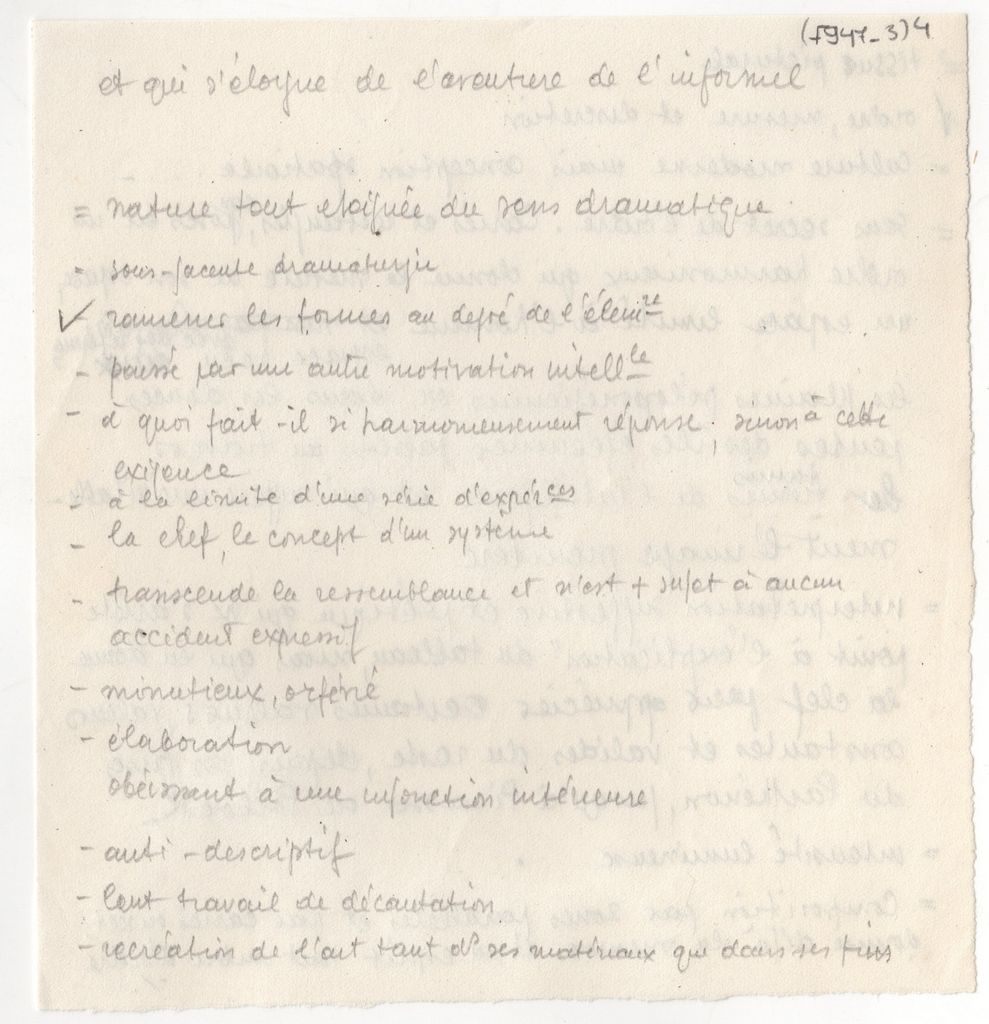 (1947-3) 4
et qui s'éloigne de l'aventure de l'informel
= nature tout eloignée du sens dramatique
- sous-jacente dramaturgie
✓ ramener les formes au degré de l'élémre
- par une autre motivation intellle
- à quoi fait-il si harmonieusement réponse, sinon à cette
exigence
- à la limite d'une série d'expérces
- la clef, le concept d'un système
- transcende la ressemblance et n'est + sujet à aucun
accident expressif
- minutieux, orfévré
- élaboration
obéissant à une injonction intérieure
- anti-descriptif
- lent travail de décantation
- recréation de l'art tant ds ses matériaux que dans ses fins